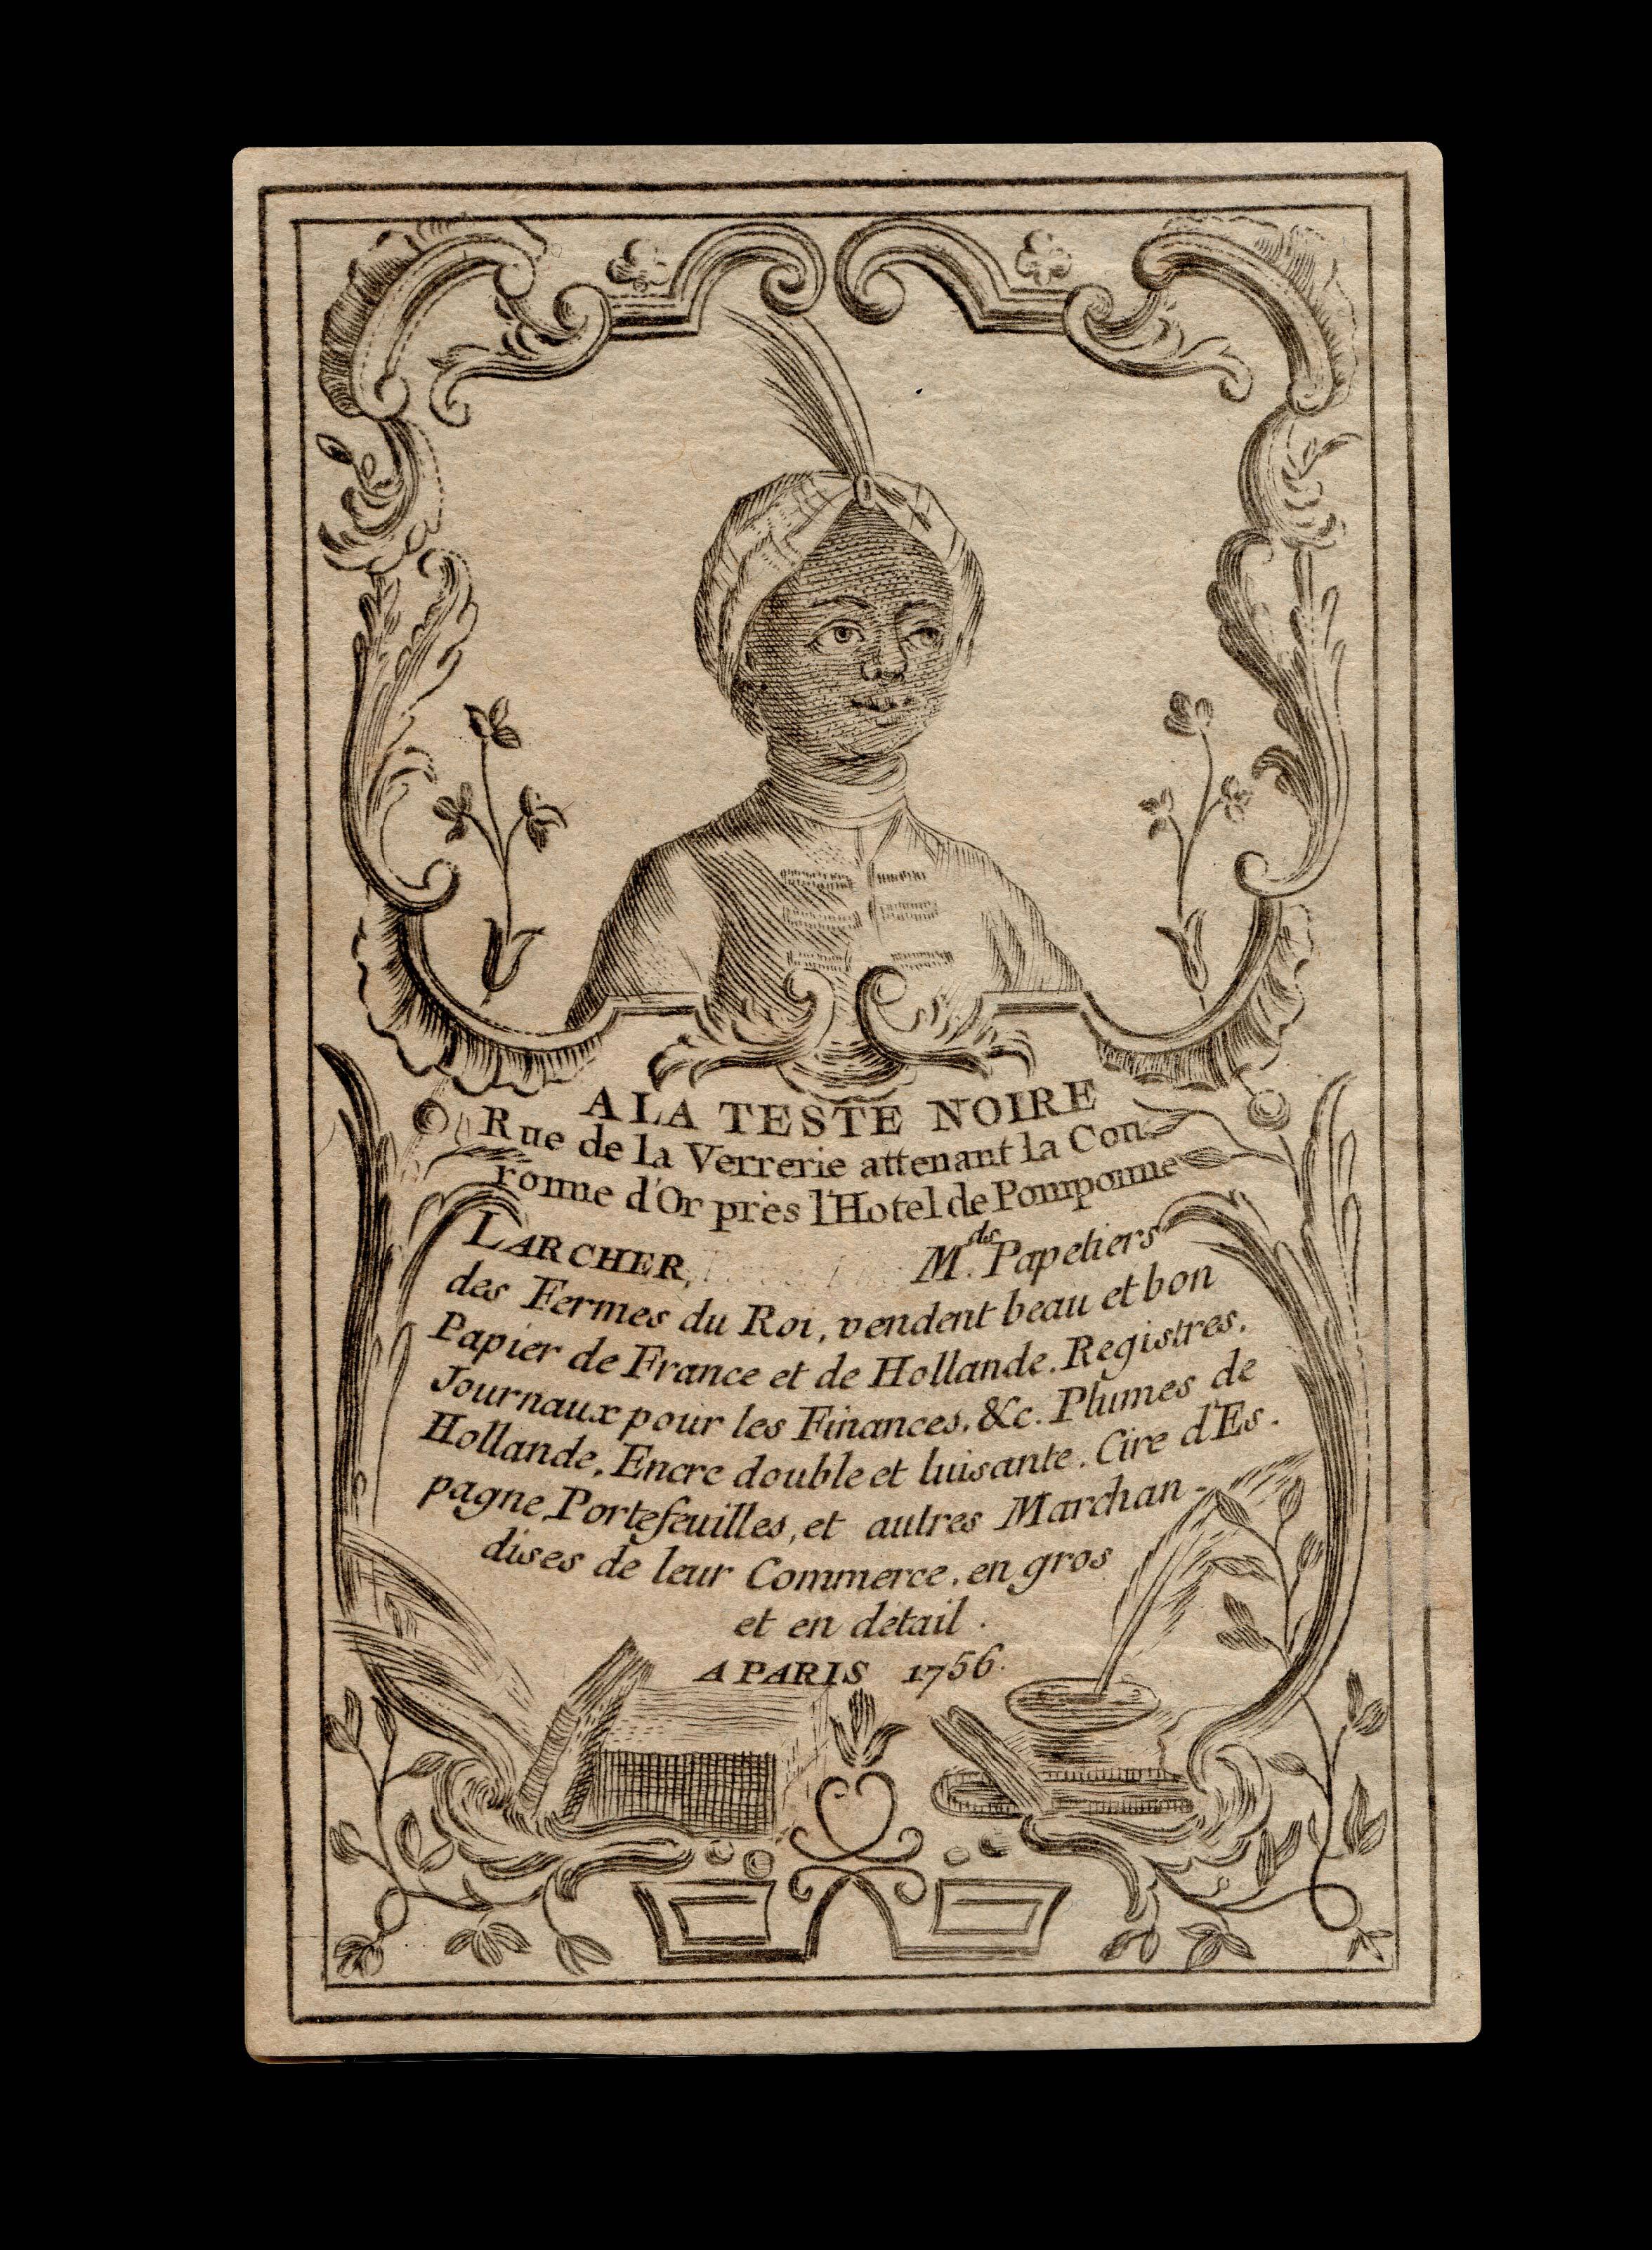 A LA TESTE NOIRE
Rue de la Verrerie attenant la Cou-
ronne d'Or près l'Hotel de Pomponne
LARCHER, Mds. Papetiers
des Fermes du Roi, vendent beau et bon
Papier de France et de Hollande. Registres.
Journaux pour les Finances, &c. Plumes de
Hollande, Encre double et luisante. Cire d'Es-
pagne, Portefeuilles, et autres Marchan-
dises de leur Commerce, en gros
et en détail.
A PARIS 1756.